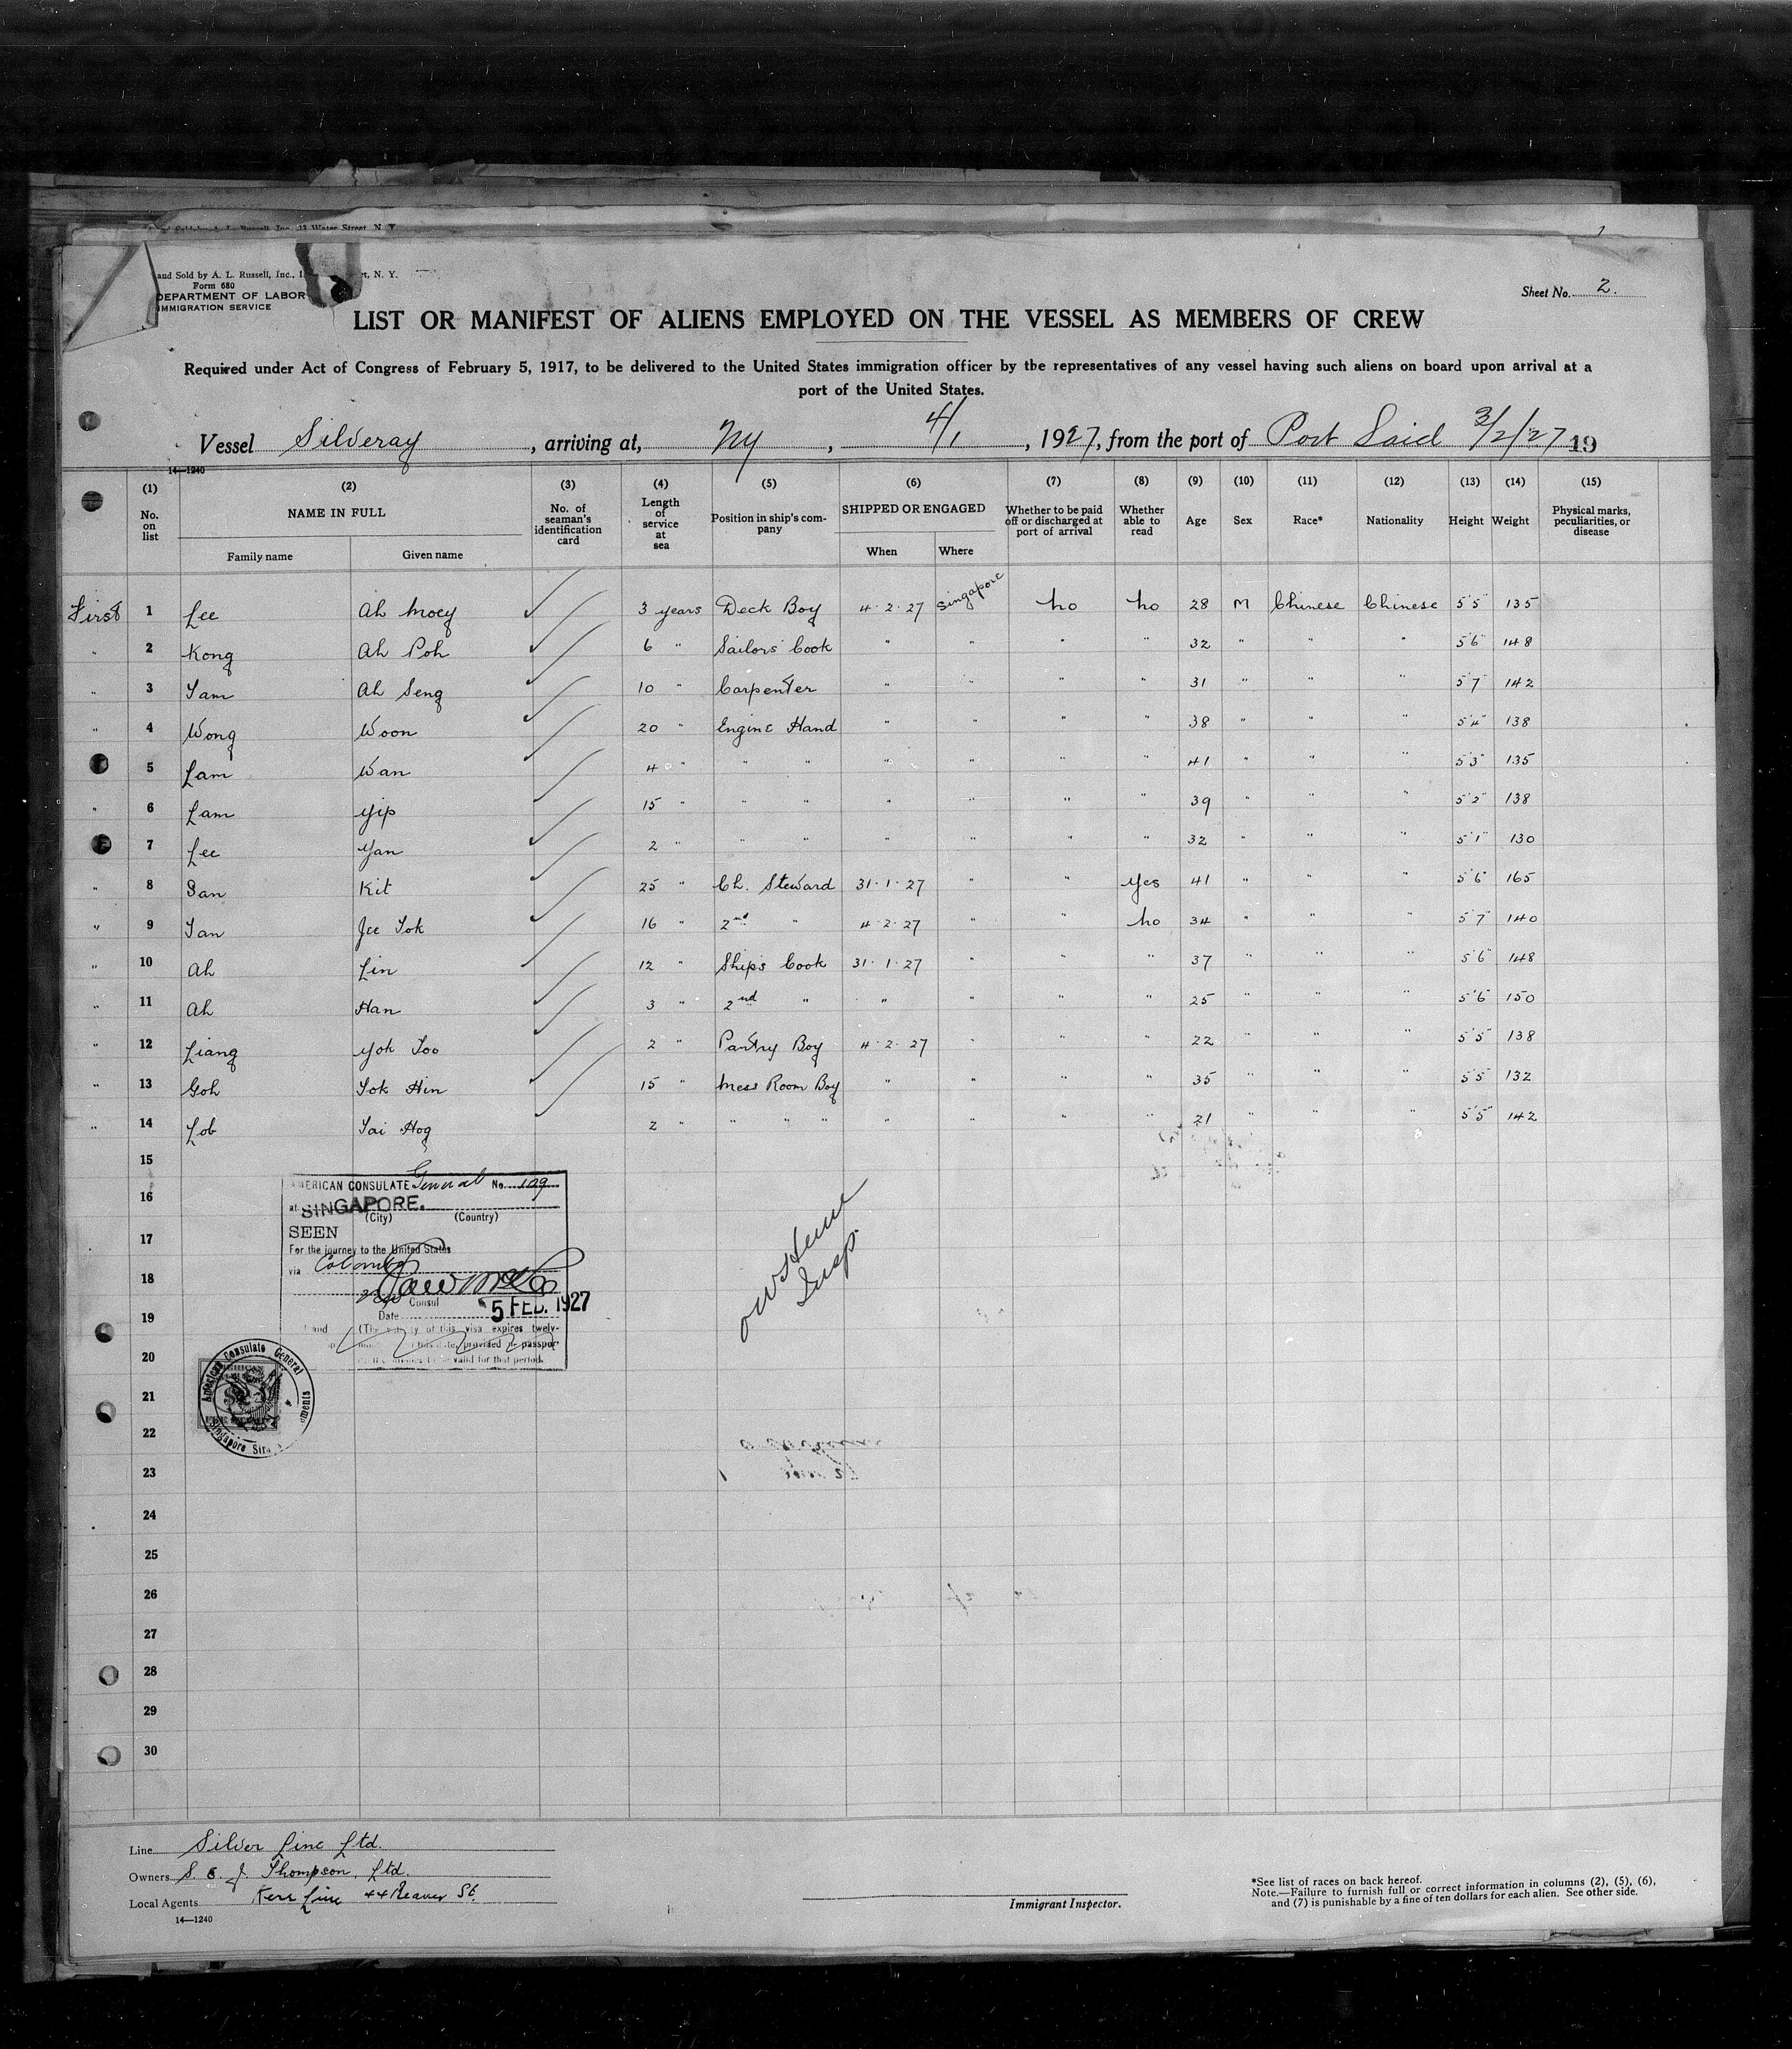 and Sold by A. L. Russell, Inc., N. Y.
Form 680
DEPARTMENT OF LABOR
IMMIGRATION SERVICE
Sheet No. 2.
LIST OR MANIFEST OF ALIENS EMPLOYED ON THE VESSEL AS MEMBERS OF CREW
Required under Act of Congress of February 5, 1917, to be delivered to the United States immigration officer by the representatives of any vessel having such aliens on board upon arrival at a
port of the United States.
Vessel Silveray, arriving at, NY, 4/1, 1927, from the port of Port Said 3/2/27 19
14—1240
(1) (2) (3) (4) (5) (6) (7) (8) (9) (10) (11) (12) (13) (14) (15)
No. on list NAME IN FULL Family name Given name No. of seaman's identification card Length of service at sea Position in ship's company SHIPPED OR ENGAGED When Where Whether to be paid off or discharged at port of arrival Whether able to read Age Sex Race* Nationality Height Weight Physical marks, peculiarities, or disease
First 1 Lee Ah Moey 3 years Deck Boy 4.2.27 Singapore no no 28 M Chinese Chinese 5'5" 135
" 2 Kong Ah Poh 6 " Sailors Cook " " " " 32 " " " 5'6" 148
" 3 Tam Ah Seng 10 " Carpenter " " " " 31 " " " 5'7" 142
" 4 Wong Woon 20 " Engine Hand " " " " 38 " " " 5'4" 138
5 Lam Wan 4 " " " " " " " 41 " " " 5'3" 135
" 6 Lam Yip 15 " " " " " " " 39 " " " 5'2" 138
7 Lee Yan 2 " " " " " " " 32 " " " 5'1" 130
" 8 San Kit 25 " Ch. Steward 31.1.27 " " Yes 41 " " " 5'6" 165
" 9 Tan Jee Tok 16 " 2nd " 4.2.27 " " no 34 " " " 5'7" 140
" 10 Ah Lin 12 " Ships Cook 31.1.27 " " " 37 " " " 5'6" 148
" 11 Ah Han 3 " 2nd " " " " " 25 " " " 5'6" 150
" 12 Liang Yok Soo 2 " Pantry Boy 4.2.27 " " " 22 " " " 5'5" 138
" 13 Goh Tok Hin 15 " Mess Room Boy " " " " 35 " " " 5'5" 132
" 14 Lob Tai Hog 2 " " " " " " " " 21 " " " 5'5" 142
15
16
17
18
19
20
21
22
23
24
25
26
27
28
29
30
AMERICAN CONSULATE General No. 109
at SINGAPORE.
(City) (Country)
SEEN
For the journey to the United States
via Colombo
Consul
Date 5 FEB. 1927
(The validity of this visa expires twelve
this date, provided passport
valid for that period.
American Consulate General
Singapore
Insp.
Line Silver Line Ltd.
Owners S. & J. Thompson, Ltd.
Local Agents Kerr Line 44 Beaver St.
14—1240
Immigrant Inspector.
*See list of races on back hereof.
Note.—Failure to furnish full or correct information in columns (2), (5), (6),
and (7) is punishable by a fine of ten dollars for each alien. See other side.